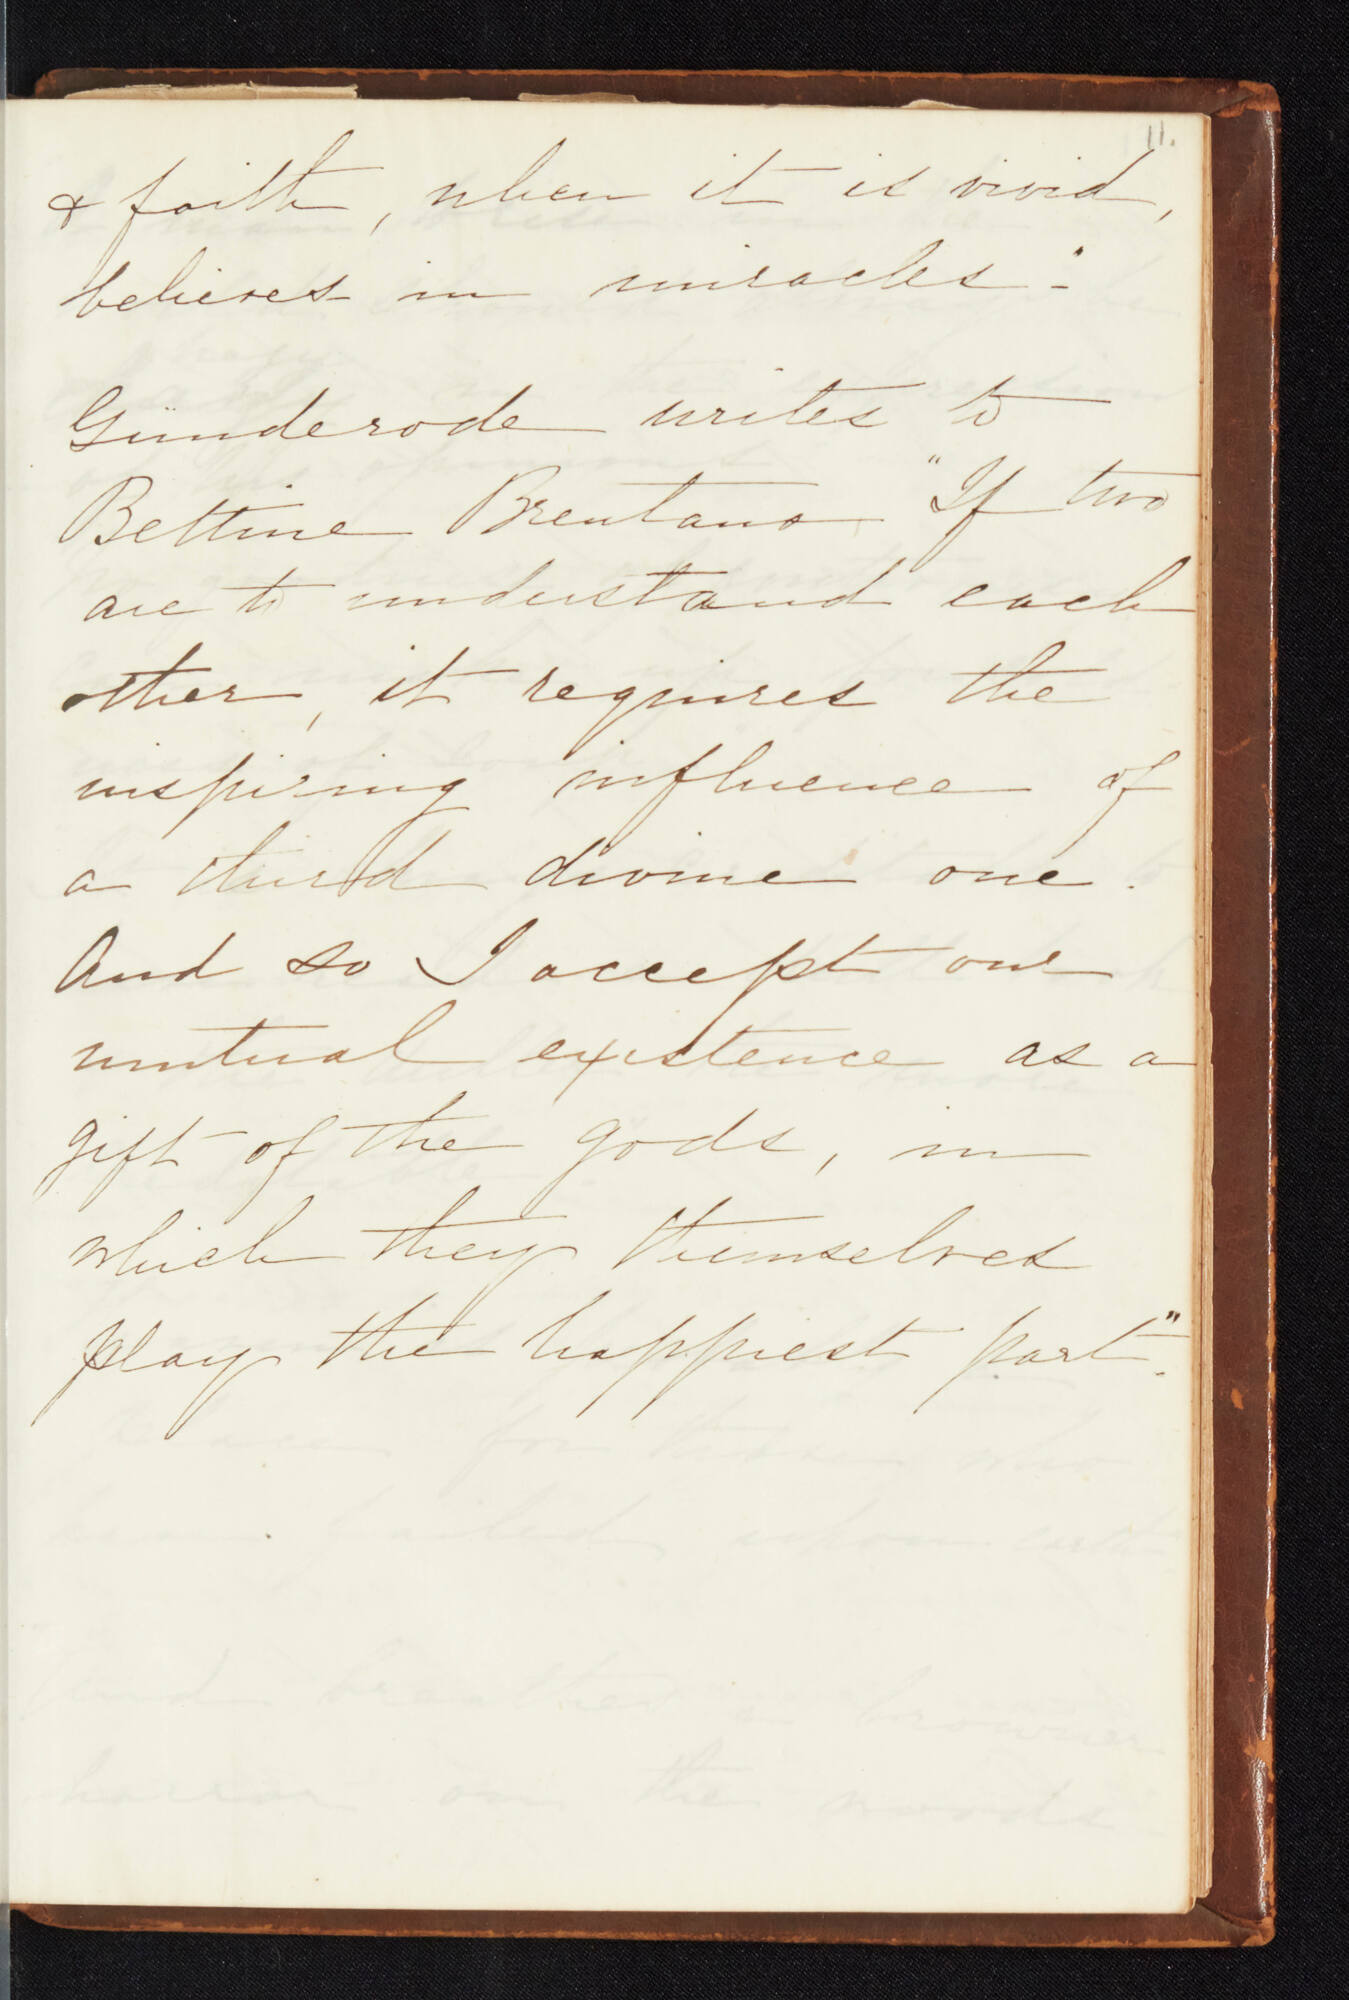 11.
& faith, when it is vivid,
believes in miracles."
Günderode writes to
Bettine Brentano "If two
are to understand each
other, it requires the
inspiring influence of
a third divine one.
And so I accept our
mutual existence as a
gift of the gods, in
which they themselves
play the happiest part."